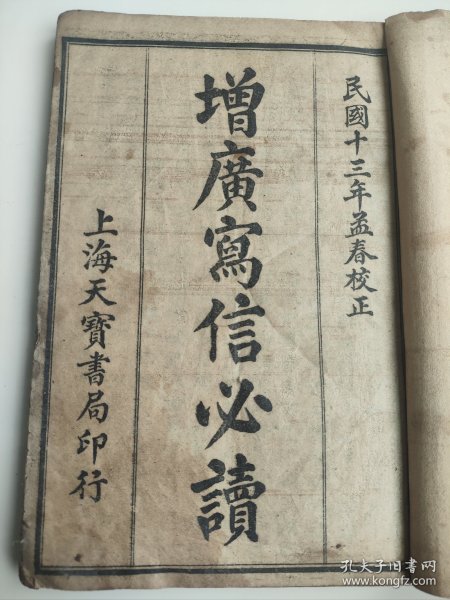 民國十三年孟春校正
增廣寫信必讀
上海天寶書局印行
孔夫子旧书网
www.kongfz.com